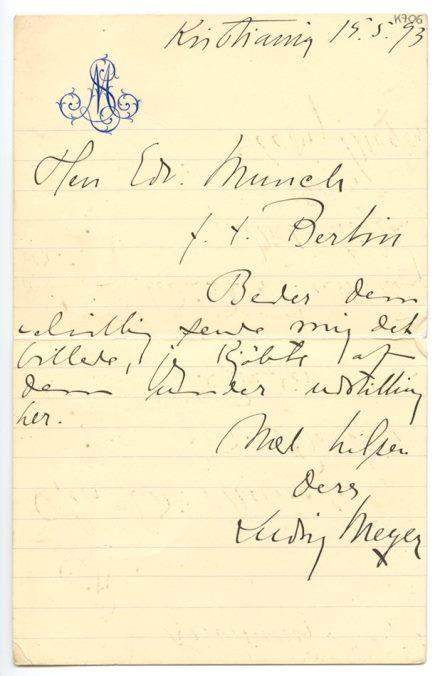 K706
Kristiania 15.5.93
Herr Edv. Munch
f. t. Berlin
Beder dem
velvillig sende mig det
billede, jeg kjøbte af
dem under udstilling
her.
Med hilsen
deres
Ludvig Meyer